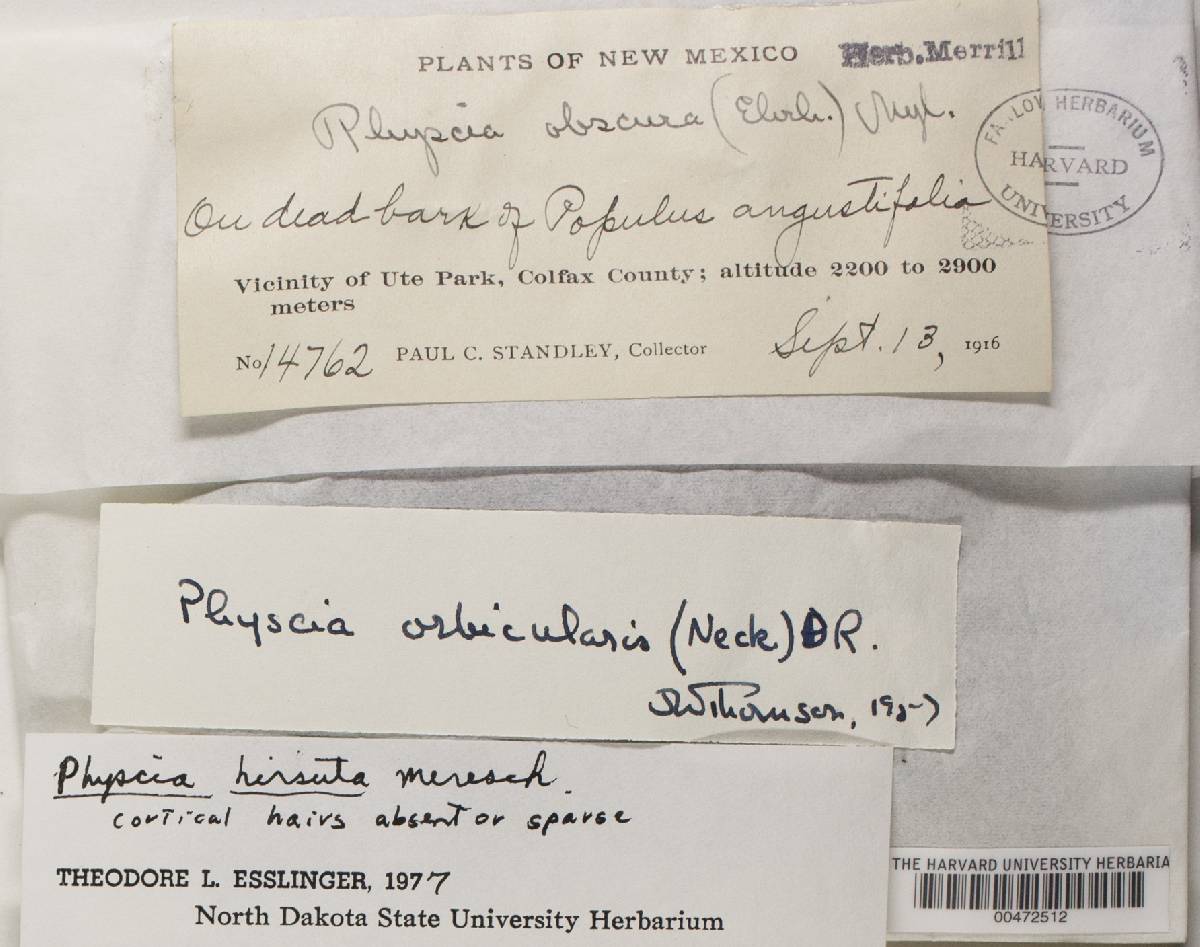 PLANTS OF NEW MEXICO Herb. Merrill
Physcia obscura (Ehrh.) Nyl.
FARLOW HERBARIUM
HARVARD
UNIVERSITY
On dead bark of Populus angustifolia
Vicinity of Ute Park, Colfax County; altitude 2200 to 2900
meters
No 14762 PAUL C. STANDLEY, Collector Sept. 13, 1916
Physcia orbicularis (Neck) DR.
JWThomson, 1957
Physcia hirsuta Meresch.
cortical hairs absent or sparse
THEODORE L. ESSLINGER, 1977
North Dakota State University Herbarium
THE HARVARD UNIVERSITY HERBARIA
00472512